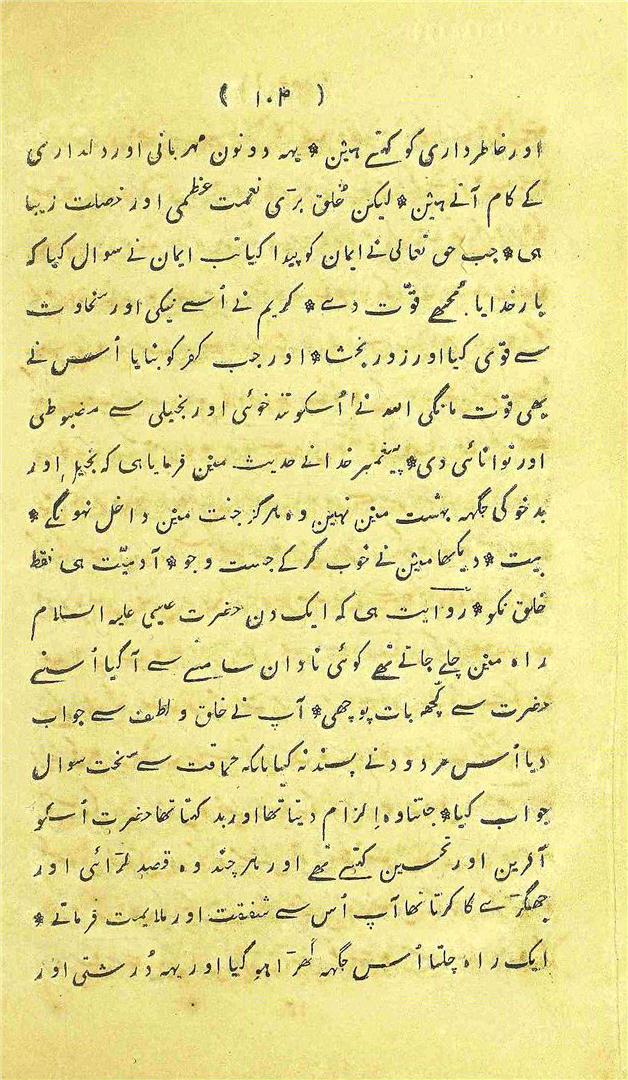 ( ۱۰۴ )
اور خاطرداری کو کہتے ہیٹن * یہہ دونون مہربانی اور دلداری
کے کام آتے ہیٹن * لیکن خُلق بڑی نعمت عظمی اور خصلت زیبا
ہی * جب حق تعالی نے ایمان کو پیدا کیا تب ایمان نے سوال کیا کہ
بار خدایا مُجھے قوّت دے * کریم نے اُسے نیکی اور سخاوت
سے قوی کیا اور زور بخشا * اور جب کفر کو بنایا اُس نے
بھی قوّت مانگی اللہ نے اُسکو تند خوئی اور بخیلی سے مضبوطی
اور توانائی دی * پیغمبر خدا نے حدیث مین فرمایا ہی کہ بخیل اور
بد خو کی جگہہ بہشت مین نہین وہ ہرگز جنت مین داخل نہونگے *
بیت * دیکھا میٹن نے خوب کر کے جست و جو * آدمیّت ہی فقط
خلق نکو * روایت ہی کہ ایک دن حضرت عیسی علیہ السلام
راہ مین چلے جاتے تھے کوئی نادان سامنے سے آ گیا اُسنے
حضرت سے کُچھ بات پوچھی * آپ نے خلق و لطف سے جواب
دیا اُس مردود نے پسند نہ کیا بلکہ حماقت سے سخت سوال
جواب کیا * جتنا وہ اِلزام دیتا تھا اور بد کہتا تھا حضرت اُسکو
آفرین اور تحسین کہتے تھے اور ہر چند وہ قصد لڑائی اور
جھگڑے کا کرتا تھا آپ اُس سے شفقت اور ملایمت فرماتے *
ایک راہ چلتا اُس جگہہ کھڑا ہو گیا اور یہہ دُرشتی اور